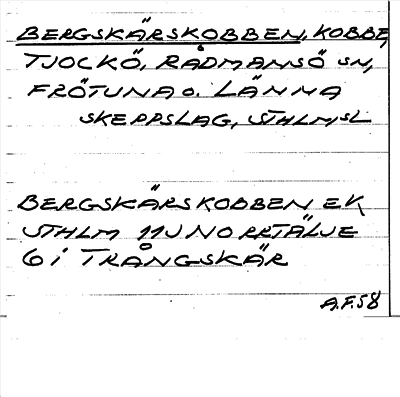 BERGSKÄRSKOBBEN, KOBBE,
TJOCKÖ, RÅDMANSÖ SN,
FRÖTUNA O. LÄNNA
SKEPPSLAG, STHLMSL
BERGSKÄRSKOBBEN EK
STHLM 11J NORRTÄLJE
6 i TRÅNGSKÄR
A.F.58